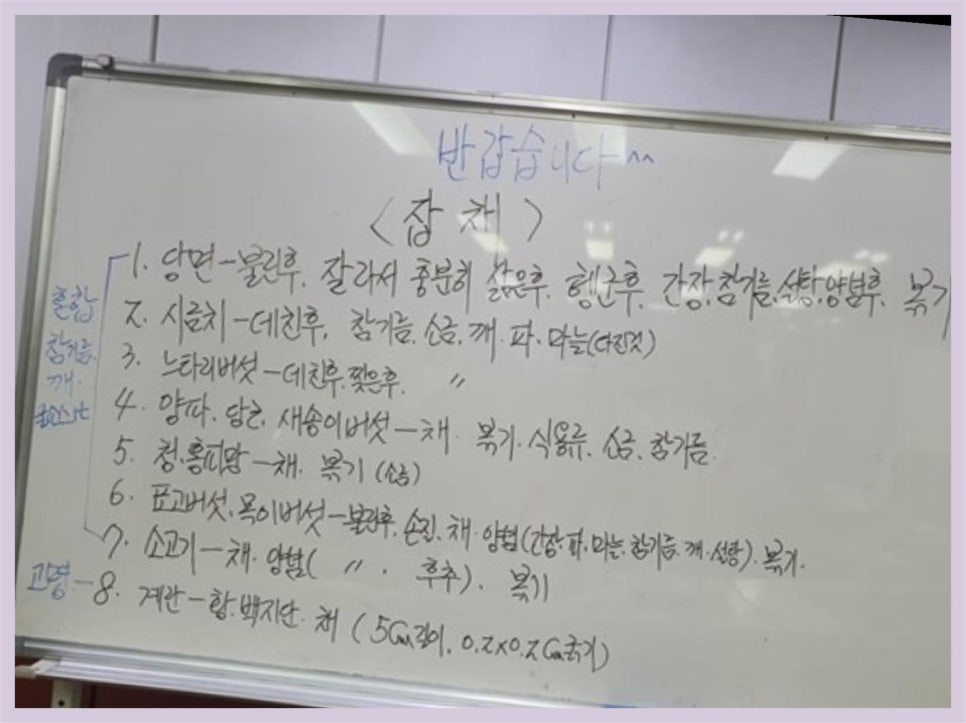 반갑습니다^^
<잡채>
1. 당면-불린후, 잘라서 충분히 삶은후, 헹군후, 간장,참기름,설탕,양념후, 볶기
2. 시금치-데친후, 참기름, 소금, 깨, 파, 마늘(다진것)
3. 느타리버섯-데친후, 찢은후, 〃
4. 양파, 당근, 새송이버섯-채, 볶기, 식용유, 소금, 참기름.
5. 청·홍피망-채, 볶기 (소금)
6. 표고버섯, 목이버섯-불린후, 손질, 채, 양념(간장·파·마늘·참기름·깨·설탕). 볶기.
7. 소고기-채, 양념( 〃 , 후추). 볶기
고명-8. 계란-황·백지단, 채 (5Cm길이, 0.2x0.2Cm굵기)
혼합
참기름,
깨,